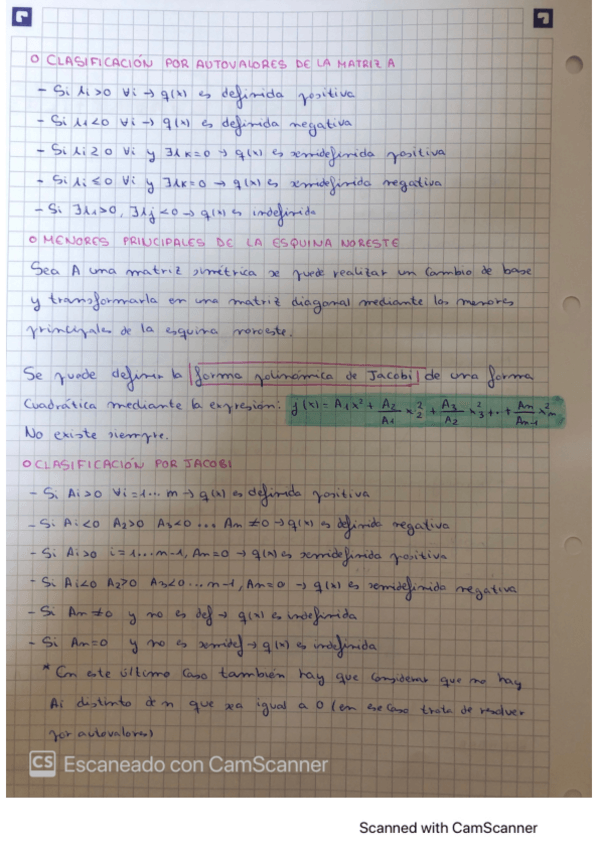 O CLASIFICACIÓN POR AUTOVALORES DE LA MATRIZ A
- Si λi>0 ∀i → q(x) es definida positiva
- Si λi<0 ∀i → q(x) es definida negativa
- Si λi≥0 ∀i y ∃λk=0 → q(x) es semidefinida positiva
- Si λi≤0 ∀i y ∃λk=0 → q(x) es semidefinida negativa
- Si ∃λi>0, ∃λj<0 → q(x) es indefinida
O MENORES PRINCIPALES DE LA ESQUINA NORESTE
Sea A una matriz simétrica se puede realizar un cambio de base
y transformarla en una matriz diagonal mediante los menores
principales de la esquina noroeste.
Se puede definir la forma polinómica de Jacobi de una forma
cuadrática mediante la expresión: q(x) = A1x² + A2/A1 x²2 + A3/A2 x²3 + ... + An/An-1 x²n
No existe siempre.
O CLASIFICACIÓN POR JACOBI
- Si Ai>0 ∀i=1...n → q(x) es definida positiva
- Si Ai<0 A2>0 A3<0 ... An ≠0 → q(x) es definida negativa
- Si Ai>0 i=1...n-1, An=0 → q(x) es semidefinida positiva
- Si Ai<0 A2>0 A3<0 ... n-1, An=0 → q(x) es semidefinida negativa
- Si An ≠0 y no es def → q(x) es indefinida
- Si An=0 y no es semidef → q(x) es indefinida
* En este último caso también hay que considerar que no hay
Ai distinto de n que sea igual a 0 (en ese caso trata de resolver
por autovalores)
CS Escaneado con CamScanner
Scanned with CamScanner